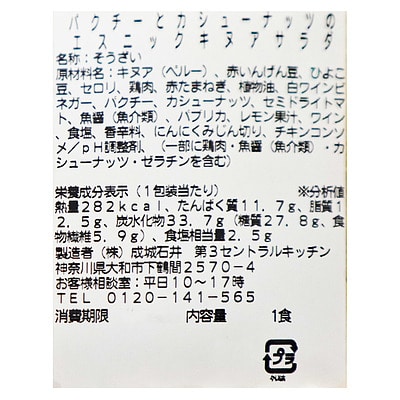 パクチーとカシューナッツの
エスニックキヌアサラダ
名称：そうざい
原材料名：キヌア（ペルー）、赤いんげん豆、ひよこ
豆、セロリ、鶏肉、赤たまねぎ、植物油、白ワインビ
ネガー、パクチー、カシューナッツ、セミドライトマ
ト、魚醤（魚介類）、パプリカ、レモン果汁、ワイン
、食塩、香辛料、にんにくみじん切り、チキンコンソ
メ／pH調整剤、（一部に鶏肉・魚醤（魚介類）・カ
シューナッツ・ゼラチンを含む）
栄養成分表示（1包装当たり） ※分析値
熱量282kcal、たんぱく質11.7g、脂質1
2.5g、炭水化物33.7g（糖質27.8g、食
物繊維5.9g）、食塩相当量2.5g
製造者（株）成城石井 第3セントラルキッチン
神奈川県大和市下鶴間2570-4
お客様相談室：平日10～17時
TEL 0120-141-565
消費期限 内容量 1食
プラ